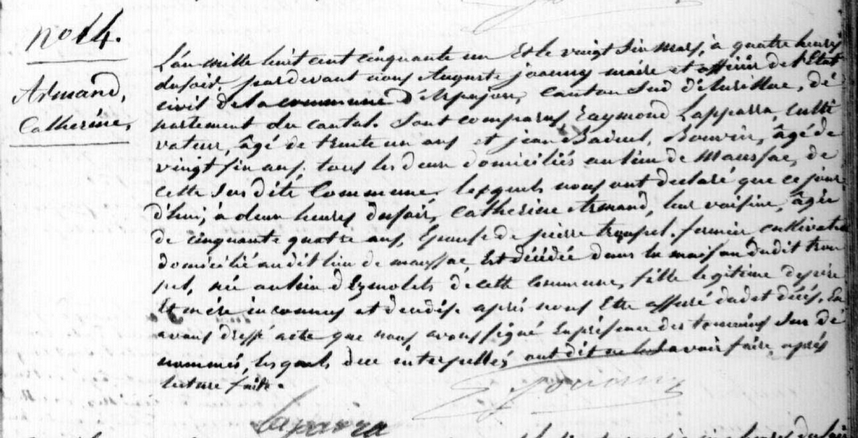 no 14.
Armand,
Catherine,
L'an mille huit cent cinquante un et le vingt six mars, à quatre heures
du soir, pardevant nous Auguste Joanny maire et officier de l'Etat
civil de la commune d'Arpajon, canton sud d'Aurillac, dé-
partement du cantal. Sont comparus Raymond Lapparra, culti
vateur, âgé de trente un ans et jean Bouvier, âgé de
vingt six ans, tous les deux domiciliés au lieu de Maussac, de
cette susdite Commune, lesquels nous ont déclaré que ce jour
d'hui, à deux heures du soir, Catherine Armand, leur voisine, âgée
de cinquante quatre ans, Epouse de pierre fermier cultivateur
domicilié audit lieu de maussac, est décédée dans la maison dudit trou
pel, née au lieu d' de cette Commune, fille légitime de père
et mère inconnus et après nous être assuré dudit décès,
avons dressé acte que nous avons signé en présence des temoins sus dé
nommés, lesquels de ce interpellés ont dit ne le savoir faire, après
lecture faite.
Joanny
Laparra